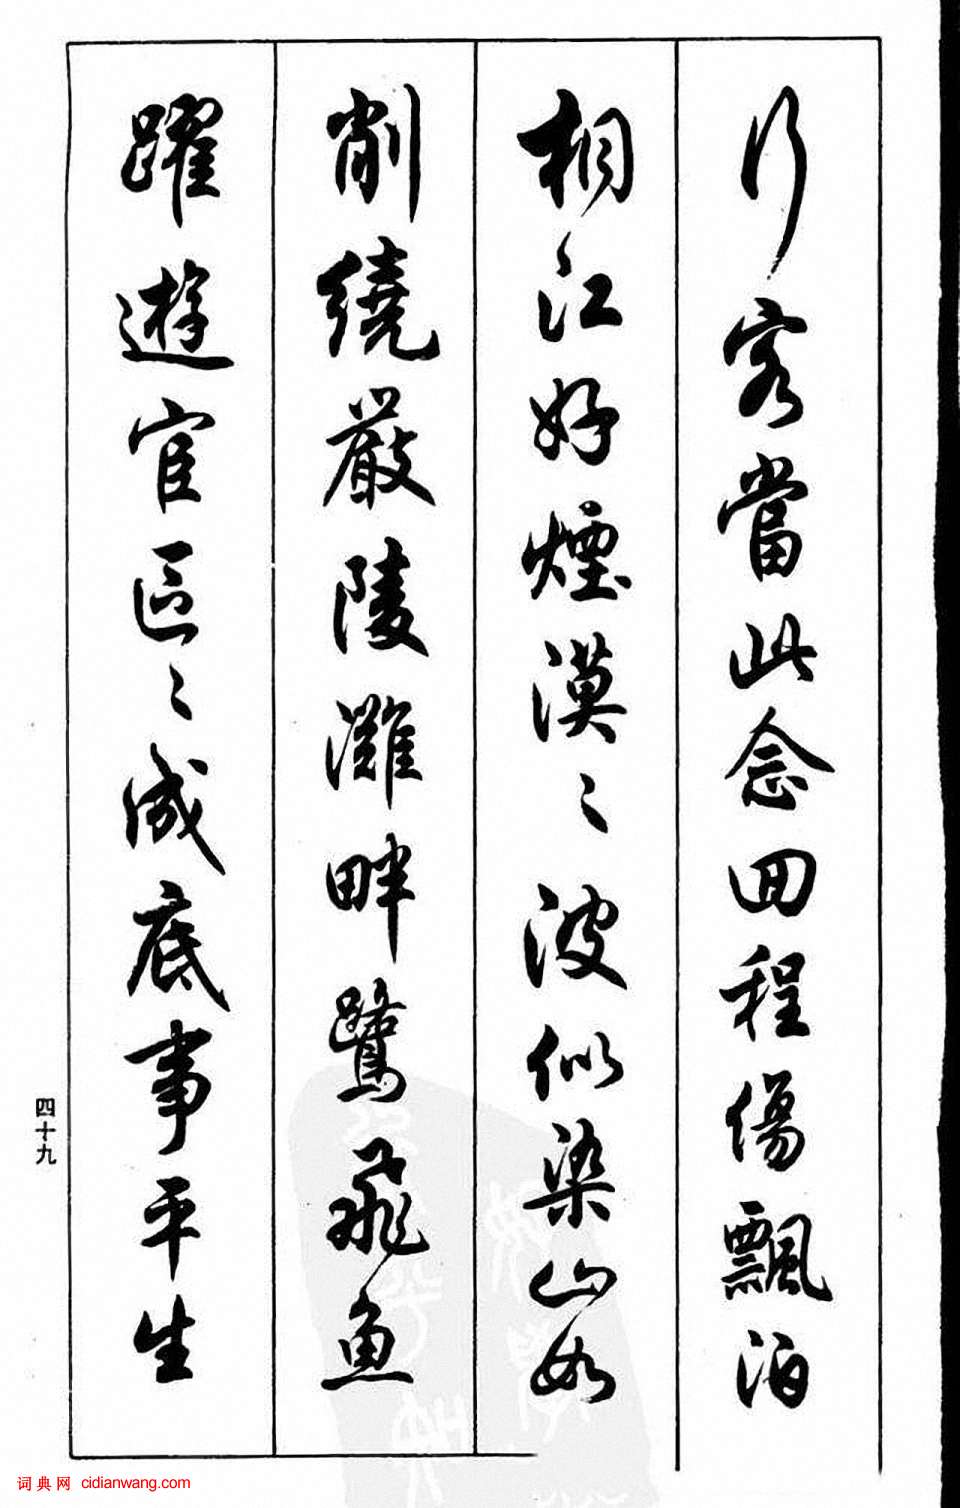 行客當此念回程傷漂泊
桐江好煙漠〻波似染山如
削繞嚴陵灘畔鷺飛魚
躍遊宦區〻成底事平生
四十九
词典网 cidianwang.com